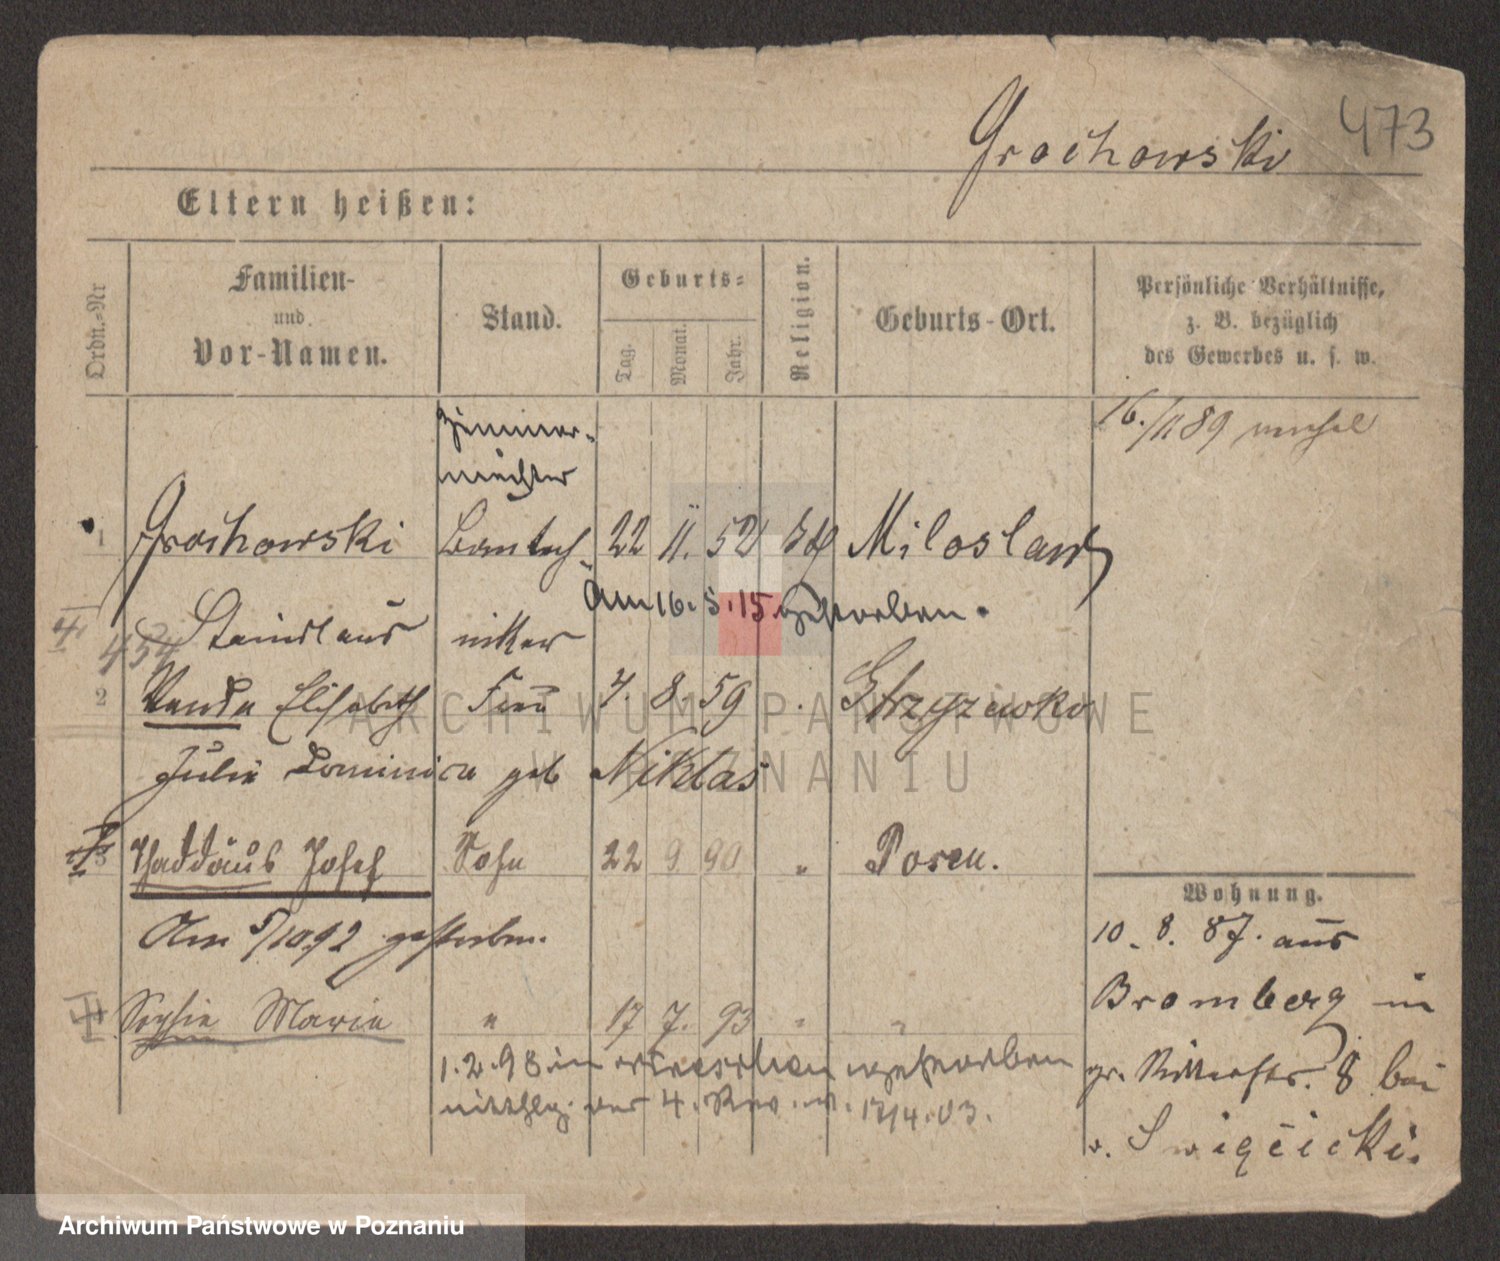 473
Grochowski
Eltern heißen:
Ordn.-Nr
Familien-
und
Vor-Namen.
Stand.
Geburts-
Tag.
Monat.
Jahr.
Religion.
Geburts-Ort.
Persönliche Verhältnisse,
z. B. bezüglich
des Gewerbes u. s. w.
16./11 89
Zimmer-
1 Grochowski Bautech 22 11. 52 kath Miloslaw
Am 16. 5. 15. gestorben.
Stanislaus niker
454
2 Wanda Elisabeth Frau 7. 8. 59
Julie Dominica geb Niklas
3 Thaddäus Josef Sohn 22 9 90 " Posen.
Am 5/10 92 gestorben.
Sophie Marie " 17 7. 93 " "
1. 2. 98 in gestorben
4. Rev. 17/4. 03.
Wohnung.
10. 8. 87. aus
Bromberg in
gr. Ritterstr. 8 bei
v. Swięcicki.
ARCHIWUM PAŃSTWOWE
W POZNANIU
Archiwum Państwowe w Poznaniu